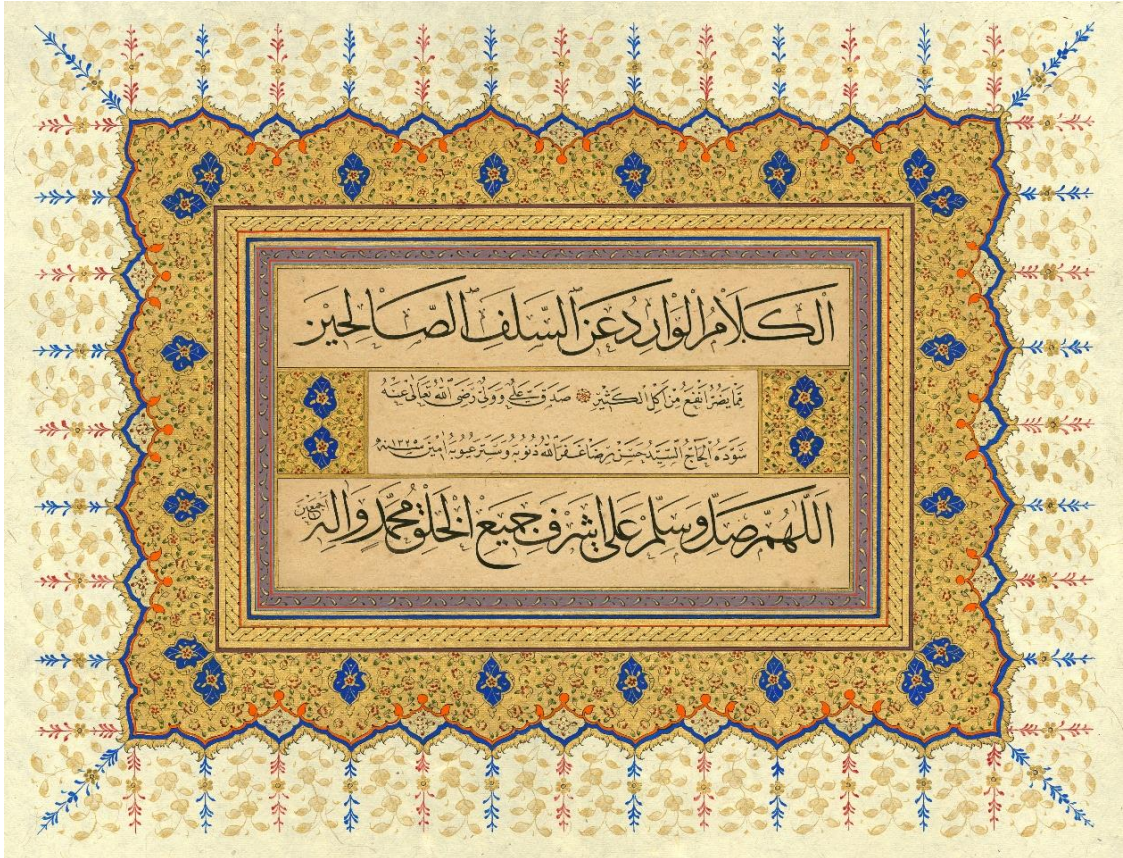 الكلام الوارد عن السلف الصالحين
مما يضر انفع من اكل الكثير صدق علي وولي رضى الله تعالى عنه
سوده الحاج السيد حسن رضا غفر الله ذنوبه وستر عيوبه امين سنه ١٣٢٥
اللهم صل وسلم على اشرف جميع الخلق محمد واله اجمعين